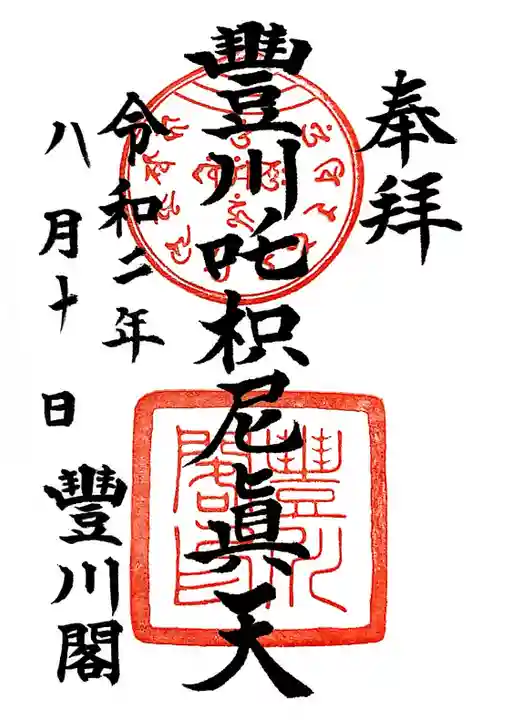 奉拜
豐川吒枳尼眞天
令和二年
八月十日
豐川閣
豐川閣印